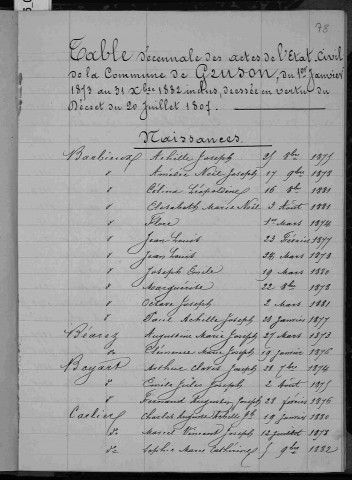 78
Table décennale des actes de l'Etat Civil
de la Commune de Gruson, du 1er Janvier
1873 au 31 Xbre 1882 inclus, dressée en vertu du
Décret du 20 Juillet 1807.
Naissances
Barbieux Achille Joseph 25 8bre 1875
d° Amélie Noël Joseph 17 9bre 1878
d° Célina Léopoldine 16 8bre 1881
d° Elisabeth Marie Noël 3 Août 1881
d° Flore 1er Mars 1874
d° Jean Louis 23 Février 1877
d° Jean Louis 28 Mars 1878
d° Joseph Emile 19 Mars 1880
d° Marguerite 22 8bre 1878
d° Octave Joseph 2 Mars 1881
d° Achille Joseph 28 Janvier 1877
Béarez Augustine Marie Joseph 27 Mars 1873
d° Clémence Marie Joseph 19 Janvier 1876
Boyart Arthur Clovis Joseph 28 7bre 1874
d° Emile Jules Joseph 2 Août 1875
d° Fernand Joseph 28 Février 1876
Carlier Charles Auguste Achille Jph 19 Janvier 1880
d° Marcel Vincent Joseph 12 Juillet 1878
d° Sophie Marie Catherine 5 9bre 1882